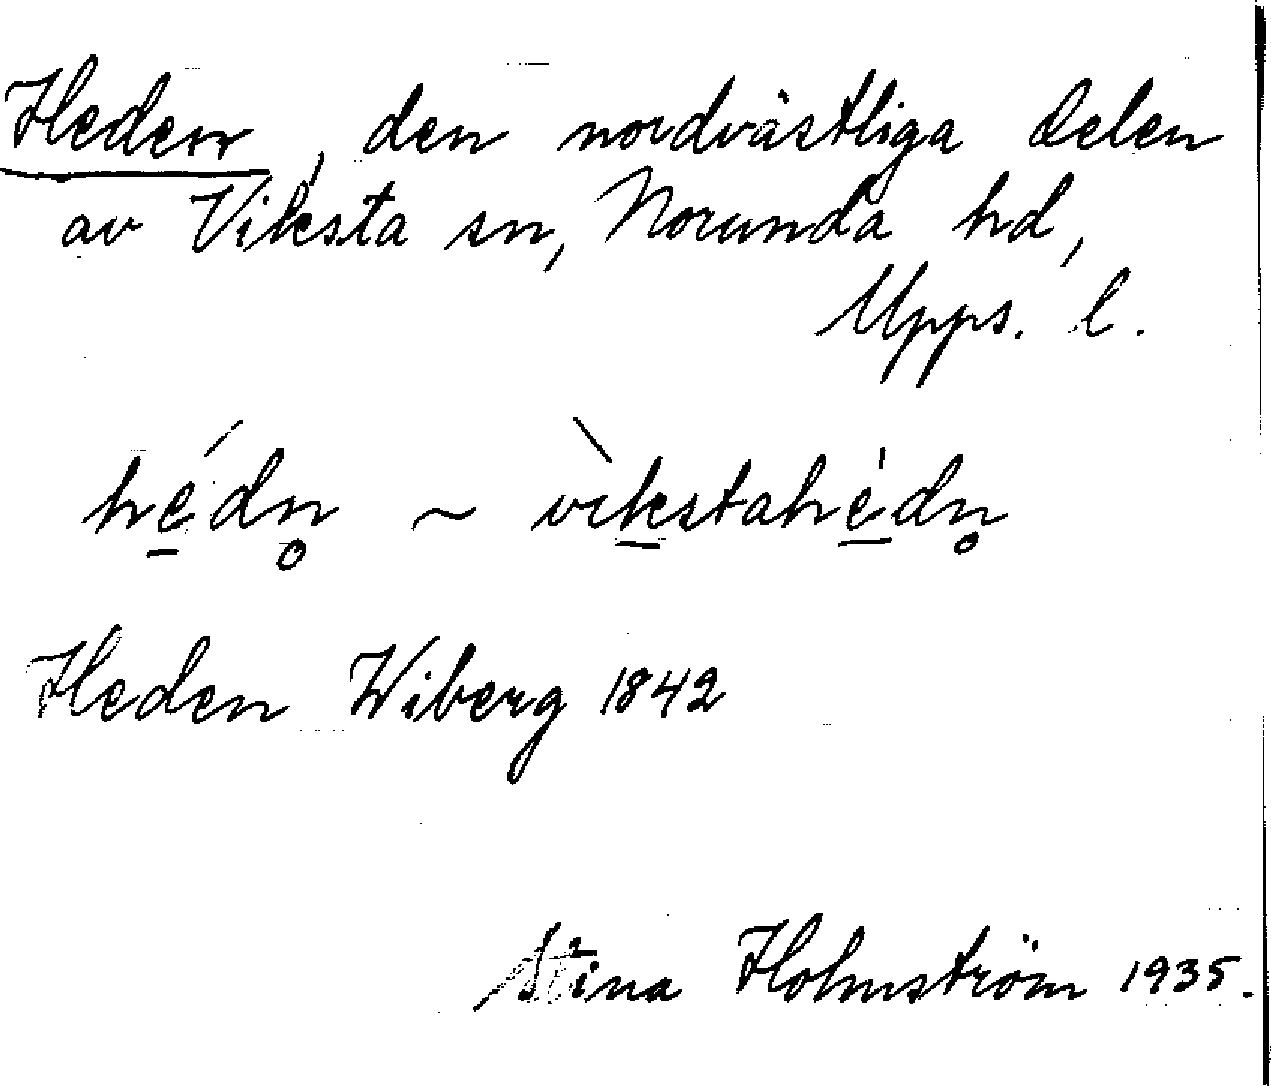 Heden, den nordvästliga delen
av Viksta sn, Norunda hd,
Upps. l.
hé̲dn̥ ~ vìk̲stahé̲dn̥
Heden Wiberg 1842
Stina Holmström 1935.